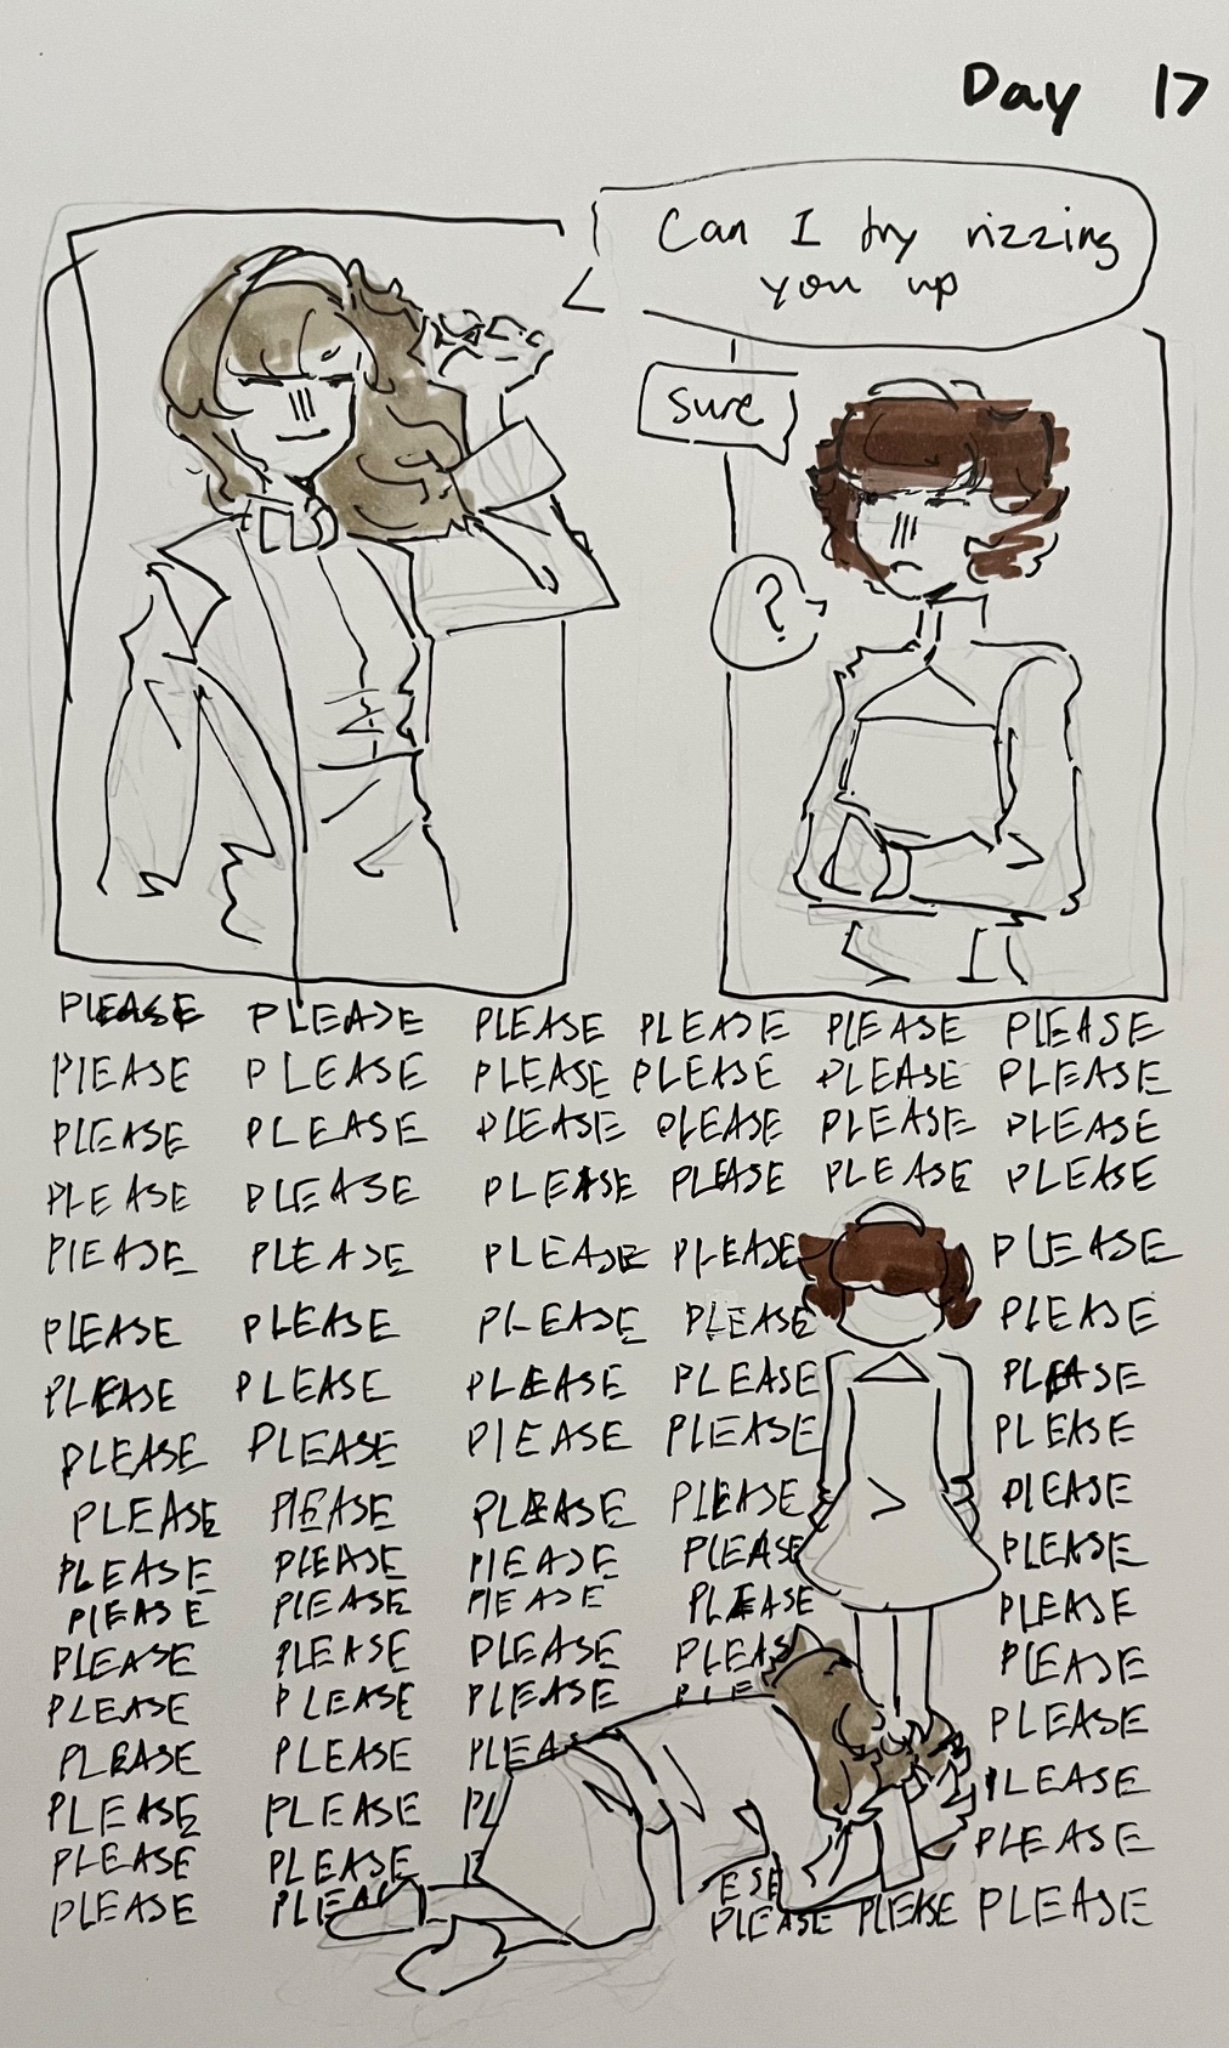 Day 17
Can I try rizzing
you up
sure
?
PLEASE PLEASE PLEASE PLEASE PLEASE PLEASE
PLEASE PLEASE PLEASE PLEASE PLEASE PLEASE
PLEASE PLEASE PLEASE PLEASE PLEASE PLEASE
PLEASE PLEASE PLEASE PLEASE PLEASE PLEASE
PLEASE PLEASE PLEASE PLEASE PLEASE
PLEASE PLEASE PLEASE PLEASE PLEASE
PLEASE PLEASE PLEASE PLEASE PLEASE
PLEASE PLEASE PLEASE PLEASE PLEASE
PLEASE PLEASE PLEASE PLEASE PLEASE
PLEASE PLEASE PLEASE PLEASE PLEASE
PLEASE PLEASE PLEASE PLEASE PLEASE
PLEASE PLEASE PLEASE PLEAS PLEASE
PLEASE PLEASE PLEASE PLE PLEASE
PLEASE PLEASE PLEAS PLEASE
PLEASE PLEASE PL PLEASE
PLEASE PLEASE E PLEASE
PLEASE PLEAS ESE
PLEASE PLEASE PLEASE